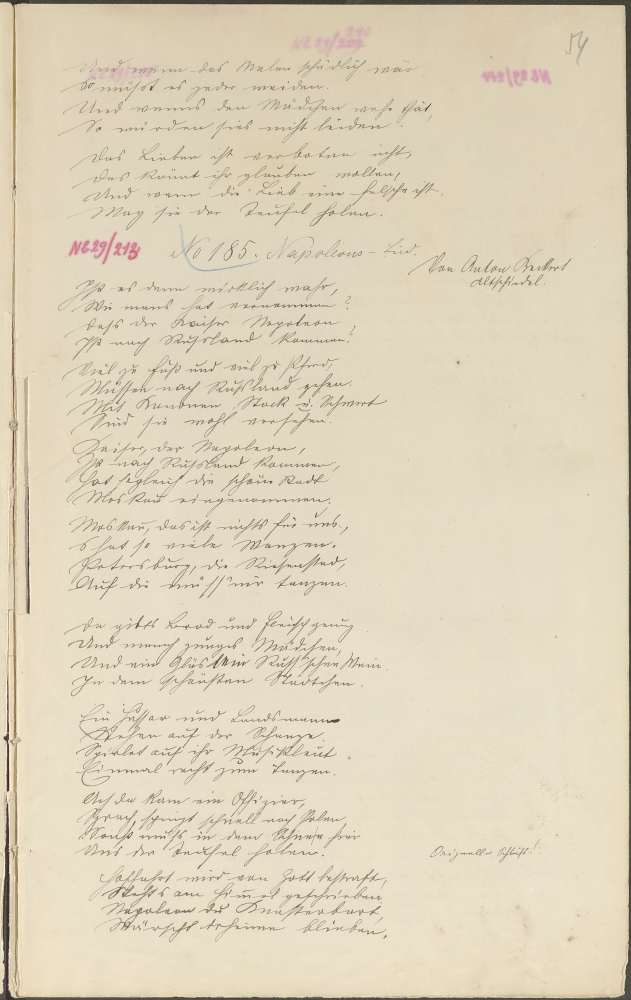 54
NE 29/209 210
Und wenn das Malen schädlich wär
So müßt es jeder meiden.
Und wenns den Mädchen wehe thät,
So würden sies nicht leiden.
Das Lieben ist verboten nicht,
Das könnt ihr glauben wollen,
Und wenn die Lieb eine falsche ist.
Mag sie der Teufel holen.
NE 29/213
No 185. Napoleons-Lied.
Von Anton
Altschiedel.
Ist es denn wirklich wahr,
Wie mans hat vernommen?
Daß der Kaiser Napoleon
Ist nach Russland kommen?
Viel zu Fuß und viel zu Pferd,
Müssen nach Rußland gehen.
Mit Kanonen, Stock u. Schwert
Sind sie wohl versehen.
Kaiser, der Napoleon,
Ist nach Russland kommen,
Hat sogleich die schöne Stadt
Moskau eingenommen.
Moskau, das ist nichts für uns,
s hat so viele Wanzen.
Petersburg, die Riesenstad,
Auf die müss' mir tanzen.
Da gibts Brod und Fleisch genug
Und manch junges Mädchen,
Und ein Gläslein Russ'schen Wein
In dem schönsten Städtchen.
Ein Husar und Landsmann
Stehen auf der Schanze.
Spielet auf ihr Musikleut
Einmal recht zum Tanzen.
Ach da kam ein Offizier,
Sprach, springt schnell nach Polen,
Sonst muß in dem Schnee hier
Uns der Teufel holen.
Originelle Schluß!
Hoffahrt wird von Gott bestraft,
Stehts am Himmel geschrieben
Napoleon du Knasterbart,
Wärscht derheime blieben,